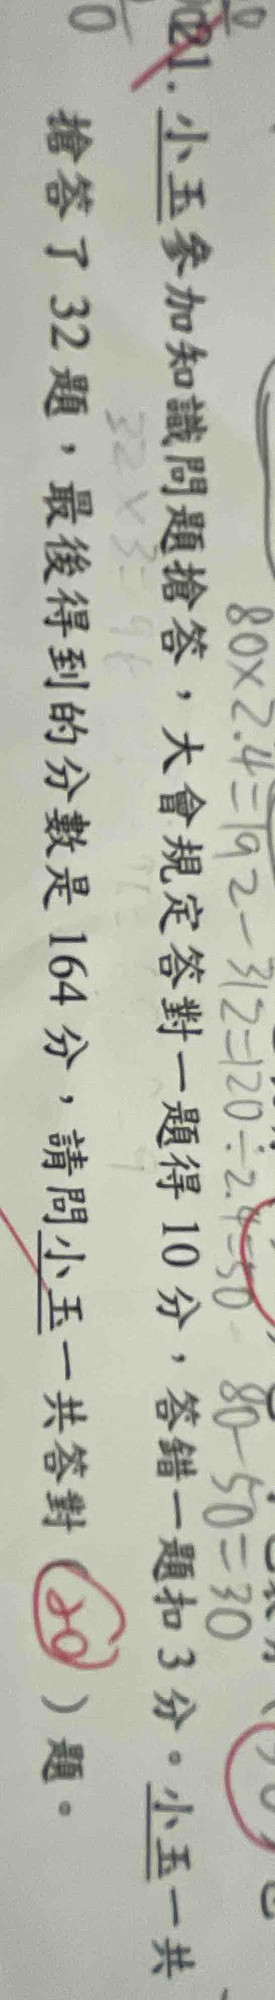 80×2.4=192-312=120÷2.4=50 80-50=30
21. 小玉參加知識問題搶答，大會規定答對一題得10分，答錯一題扣3分。小玉一共
32×3=96
搶答了32題，最後得到的分數是164分，請問小玉一共答對（20）題。